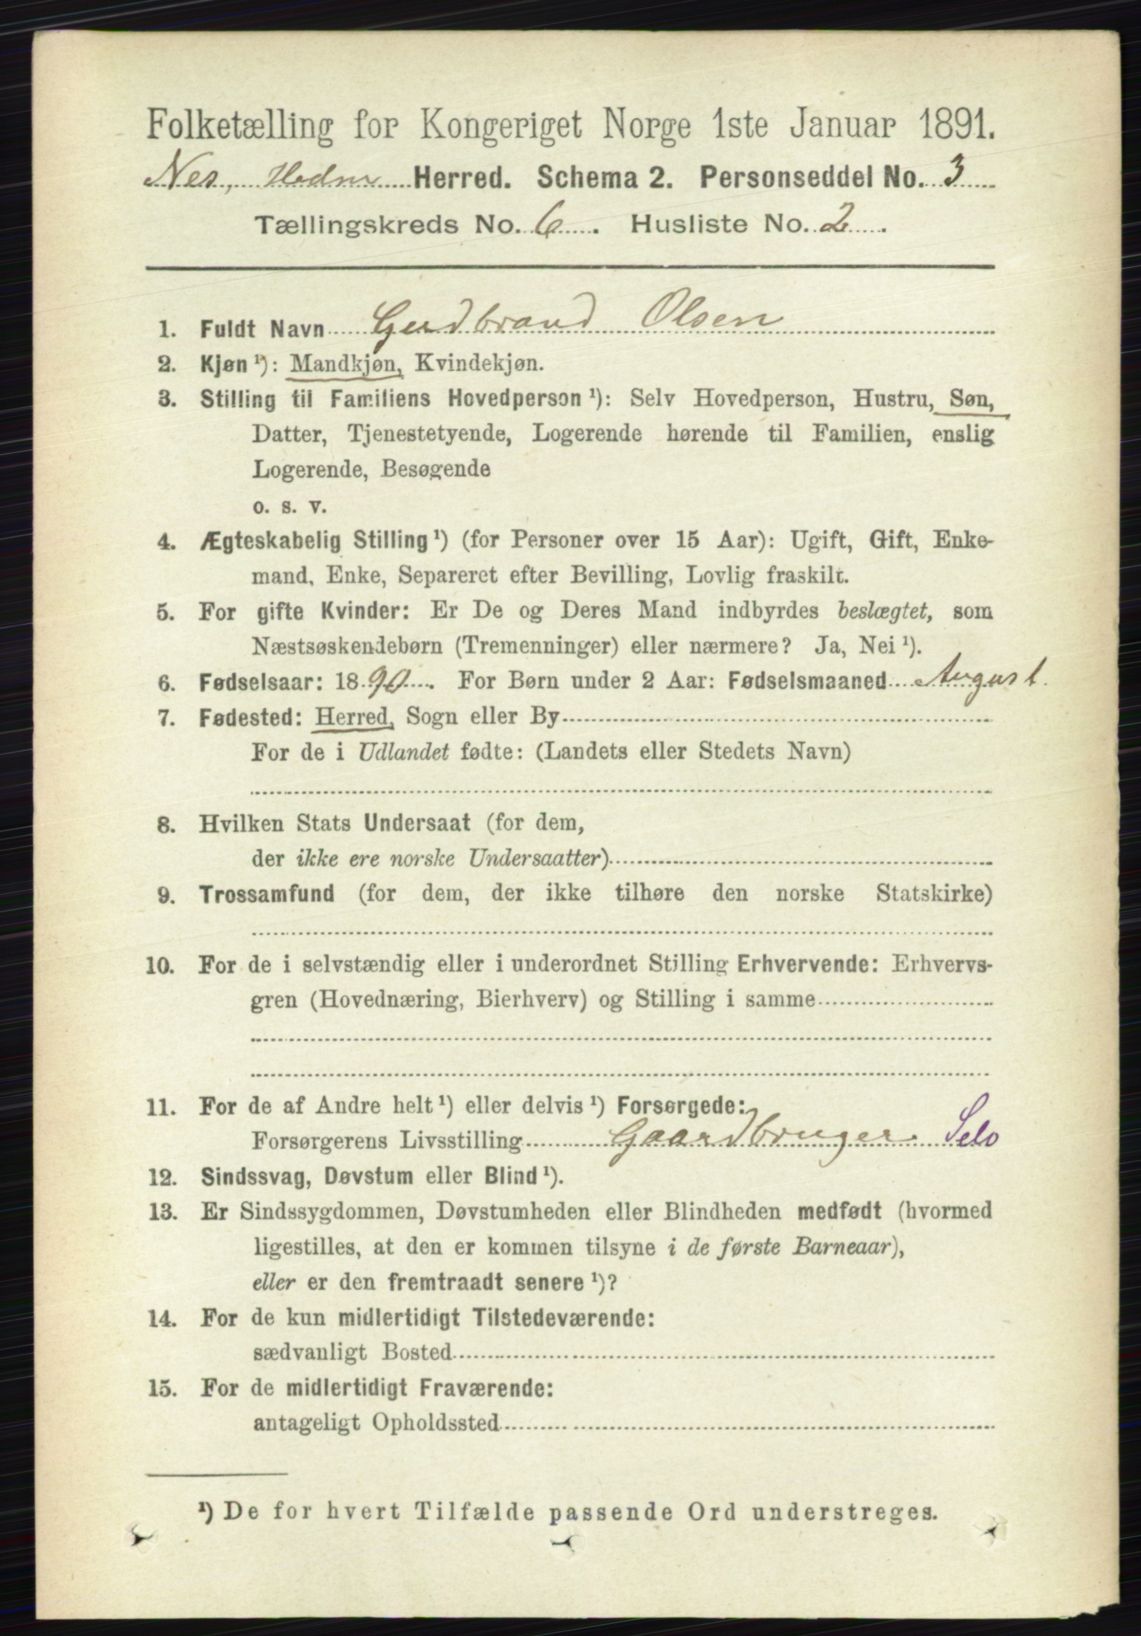 Folketælling for Kongeriget Norge 1ste Januar 1891.
Nes, Hedm Herred. Schema 2. Personseddel No. 3
Tællingskreds No. 6. Husliste No. 2.
1. Fuldt Navn Gudbrand Olsen
2. Kjøn ¹): Mandkjøn, Kvindekjøn.
3. Stilling til Familiens Hovedperson ¹): Selv Hovedperson, Hustru, Søn,
Datter, Tjenestetyende, Logerende hørende til Familien, enslig
Logerende, Besøgende
o. s. v.
4. Ægteskabelig Stilling ¹) (for Personer over 15 Aar): Ugift, Gift, Enke-
mand, Enke, Separeret efter Bevilling, Lovlig fraskilt.
5. For gifte Kvinder: Er De og Deres Mand indbyrdes beslægtet, som
Næstsøskendebørn (Tremenninger) eller nærmere? Ja, Nei ¹).
6. Fødselsaar: 1890. For Børn under 2 Aar: Fødselsmaaned August.
7. Fødested: Herred, Sogn eller By
For de i Udlandet fødte: (Landets eller Stedets Navn)
8. Hvilken Stats Undersaat (for dem,
der ikke ere norske Undersaatter)
9. Trossamfund (for dem, der ikke tilhøre den norske Statskirke)
10. For de i selvstændig eller i underordnet Stilling Erhvervende: Erhvervs-
gren (Hovednæring, Bierhverv) og Stilling i samme
11. For de af Andre helt ¹) eller delvis ¹) Forsørgede:
Forsørgerens Livsstilling Gaardbruger Selv
12. Sindssvag, Døvstum eller Blind ¹).
13. Er Sindssygdommen, Døvstumheden eller Blindheden medfødt (hvormed
ligestilles, at den er kommen tilsyne i de første Barneaar),
eller er den fremtraadt senere ¹)?
14. For de kun midlertidigt Tilstedeværende:
sædvanligt Bosted
15. For de midlertidigt Fraværende:
antageligt Opholdssted
¹) De for hvert Tilfælde passende Ord understreges.